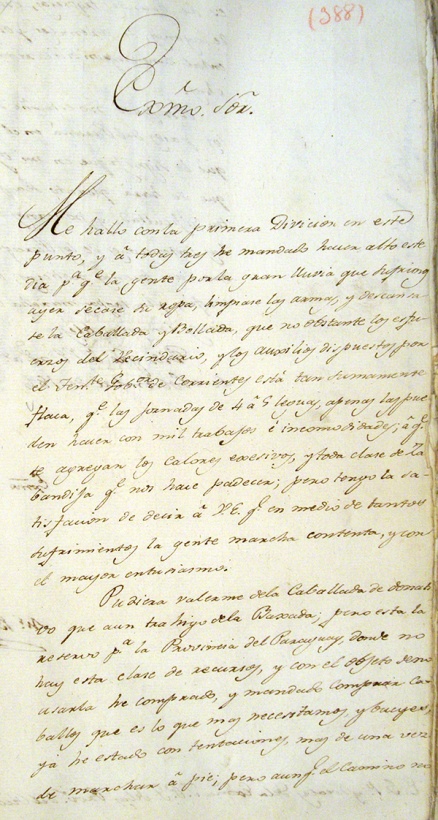 (388)
Exmo. Sor.
Me hallo con la primera Divicion en este
punto, y â todas tres he mandado hacer alto este
dia pa. qe. la gente por la gran lluvia que sufrieron
ayer secase su ropa, limpiase las armas, y descansa-
se la Caballada y Bollada, que no obstante los esfu-
erzos del Vecindario, y los Auxilios dispuestos por
el Tente. Gobor. de Corrientes está tan sumamente
flaca, qe. las jornadas de 4 â 5 leguas, apenas las pue-
den hacer con mil trabajos é incomodidades; â qe.
se agregan los Calores exesivos, y toda clase de Sa-
bandija qe. nos hace padecer; pero tengo la sa-
tisfacion de decir â V.E. qe. en medio de tantos
sufrimientos la gente marcha contenta, y con
el mayor entusiasmo.
Pudiera valerme de la Caballada de dona-
vo que aun trahigo de la Baxada; pero esta la
reservo pa. la Provincia del Paraguay, donde no
hay esta clase de recursos, y con el objeto de no
usarla he comprado, y mandado comprar Ca-
ballos que es lo que mas necesitamos, y bueyes,
ya he estado con tentaciones, mas de una vez
de marchar â pie; pero aunqe. el Camino no